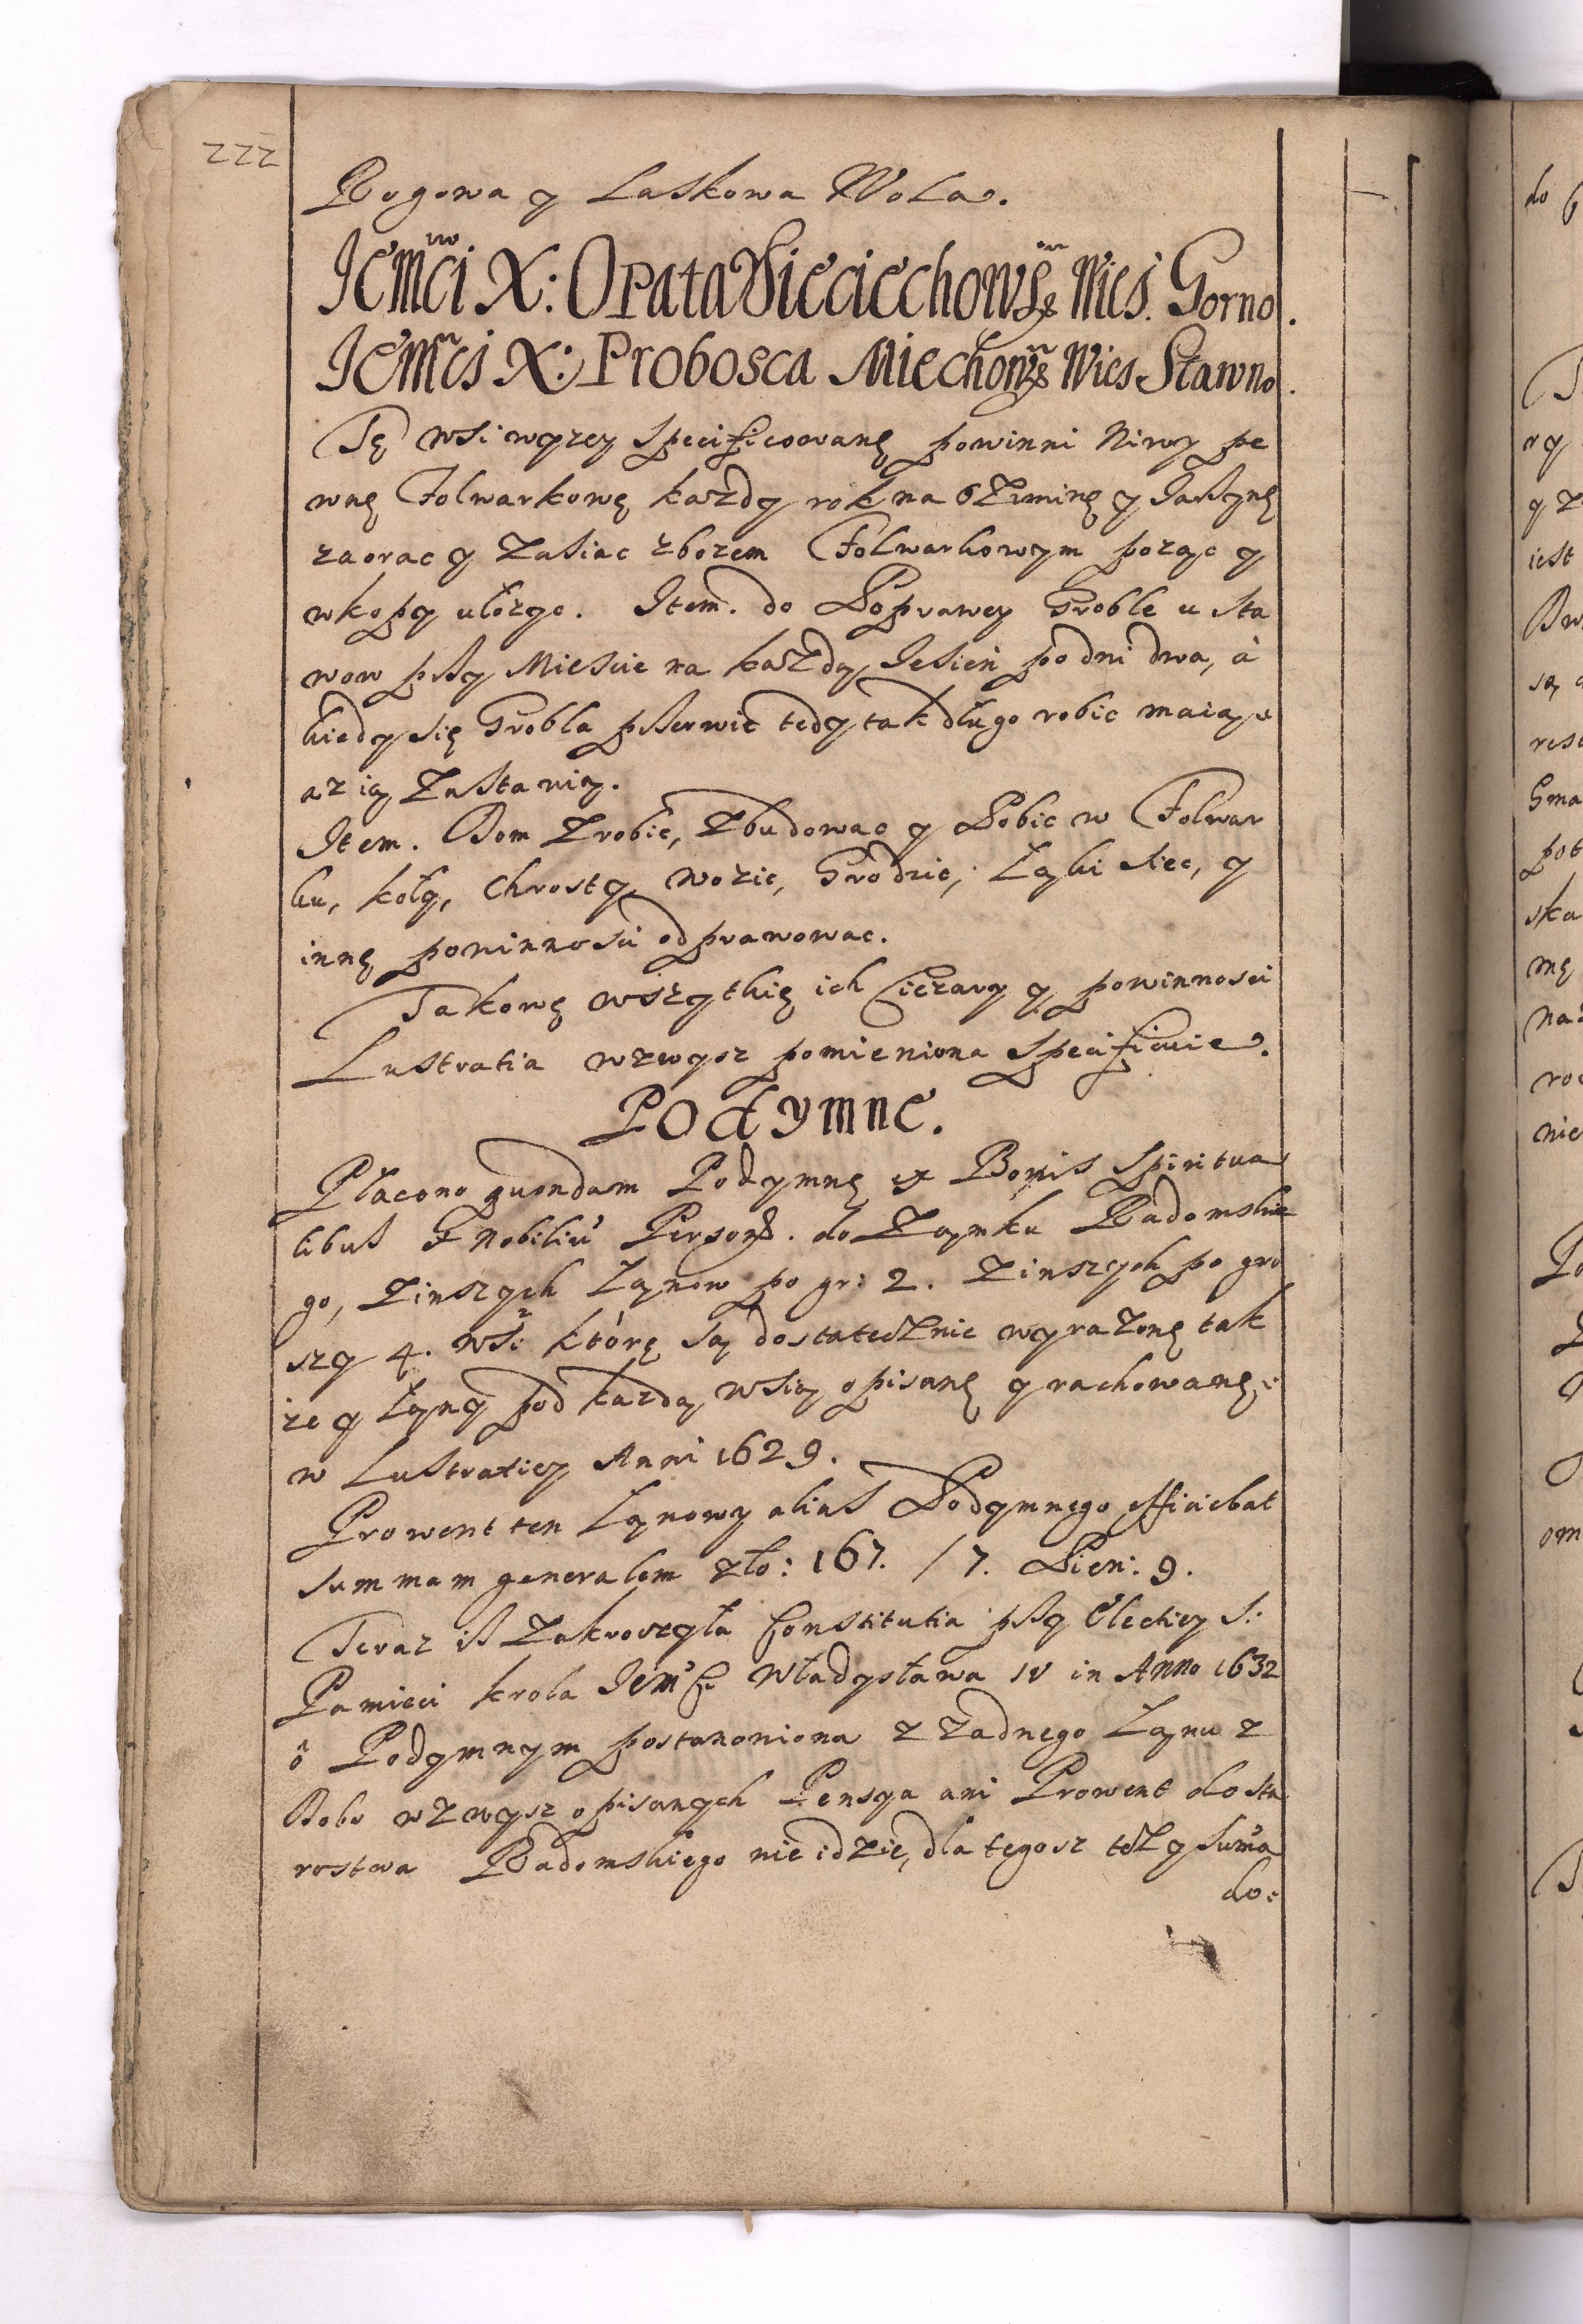 222
Rogowa y Laskowa Wola.
Jemci X: Opata Sieciechowsg Wies. Gorno.
Jemci X: Probosca Miechowsg Wies Sławno.
Tę wsi wyzey specificowanę powinni Niwy pe
wnę Folwarkowę kazdy rok na Oziminę y Jarzynę
zaorac y zasiac zbozem Folwarkowym pożąc y
w kopy ulozyc. Item. do Poprawey Groble u Sta
wow przy Miescie na kazdą Jesień po dni dwa, à
kiedy się Grobla przerwie tedy tak długo robic maią
az ią zastanią.
Item. Dom zrobic, zbudowac y Pobic w Folwar
ku, koły, Chrosty wozic, Grodzic, Łąki siec, y
innę powinnosci odprawowac.
Takowę wszytkię ich Ciezary y powinnosci
Lustratia wzwysz pomieniona specificuie.
Podymne.
Płacono quondam Podymnę ex Bonis Spiritua
libus et Nobiliu Person. do Zamku Radomskie
go, z inszych Łanow po gr: 2. z inszych po gro
szy 4. wsi którę są dostatecznie wyrazonę tak
ze y Łany pod kazdą wsią opisanę y rachowanę
w Lustratiey Anni 1629.
Prowent ten Łanowy alias Podymnego efficiebat
summam generalem zło: 167. /7. Pien: 9.
Teraz isz zakroczyła Constitutia przy Electiey S:
Pamieci krola Jem Władysława IV in Anno 1632
ô Podymnym postanowiona z zadnego Łanu z
Dobr wzwysz opisanych Pensya ani Prowent do sta
rostwa Radomskiego nie idzie, dla tegosz tesz y suma
do:
do
iest
ska
mę
nie
om